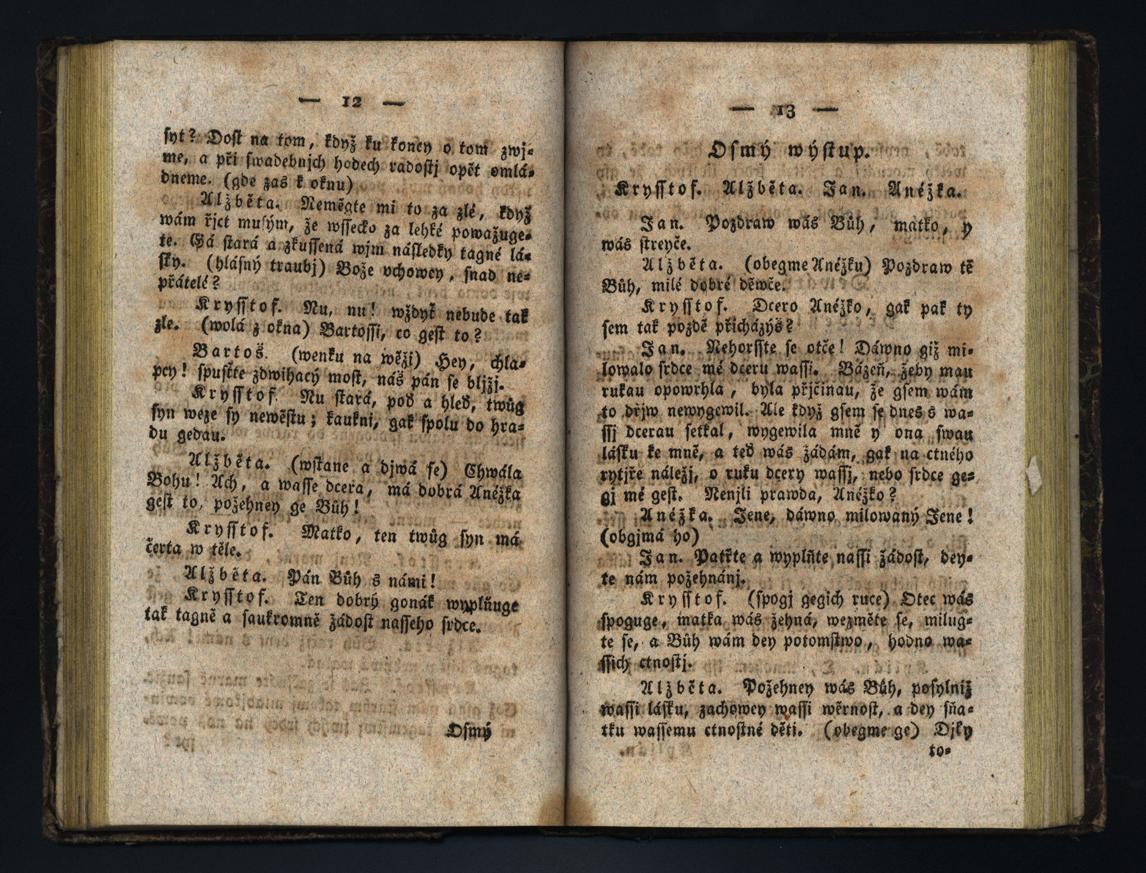 — 12 —
syt? Dost na tom, když ku koncy o tom zwj-
me, a při swadebnjch hodech radostj opět omlá-
dneme. (gde zas k oknu)
Alžběta. Neměgte mi to za zlé, když
wám řjct musým, že wssecko za lehké powažuge-
te. Gá stará a zkussená wjm následky tagné lá-
sky. (hlásný traubj) Bože vchowey, snad ne-
přátelé?
Krysstof. Nu, nu! wždyť nebude tak
zle. (wolá z okna) Bartossi, co gest to?
Bartoš. (wenku na wěži) Hey, chla-
pcy! spusťte zdwihacý most, náš pán se bljžj.
Krysstof. Nu stará, poď a hleď, twůg
syn weze sy newěstu; kaukni, gak spolu do hra-
du gedau.
Alžběta. (wstane a djwá se) Chwála
Bohu! Ach, a wasse dcera, má dobrá Anéžka
gest to, požehney ge Bůh!
Krysstof. Matko, ten twůg syn má
čerta w těle.
Alžběta. Pán Bůh s námi!
Krysstof. Ten dobrý gonák wyplňuge
tak tagně a saukromně žádost nasseho srdce.
Osmý
— 13 —
Osmý weystup.
Krysstof. Alžběta. Jan. Anéžka.
Jan. Pozdraw wás Bůh, matko, y
wás streyče.
Alžběta. (obegme Anéžku) Pozdraw tě
Bůh, milé dobré děwče.
Krysstof. Dcero Anéžko, gak pak ty
sem tak pozdě přicházýš?
Jan. Nehorsste se otče! Dáwno giž mi-
lowalo srdce mé dceru wassi. Bázeň, žeby mau
rukau opowrhla, byla přjčinau, že gsem wám
to dřjw newygewil. Ale když gsem se dnes s wa-
ssj dcerau setkal, wygewila mně y ona swau
lásku ke mně, a teď wás žádám, gak na ctného
rytjře náležj, o ruku dcery wassj, nebo srdce ge-
gj mé gest. Nenjli prawda, Anéžko?
Anéžka. Jene, dáwno milowaný Jene!
(obgjmá ho)
Jan. Patřte a wyplňte nassi žádost, dey-
te nám požehnánj.
Krysstof. (spogj gegich ruce) Otec wás
spoguge, matka wás žehná, wezměte se, milug-
te se, a Bůh wám dey potomstwo, hodno wa-
ssich ctnostj.
Alžběta. Požehney wás Bůh, posylniž
wassi lásku, zachowey wassi wěrnost, a dey sňa-
tku wassemu ctnostné děti. (obegme ge) Djky
to-